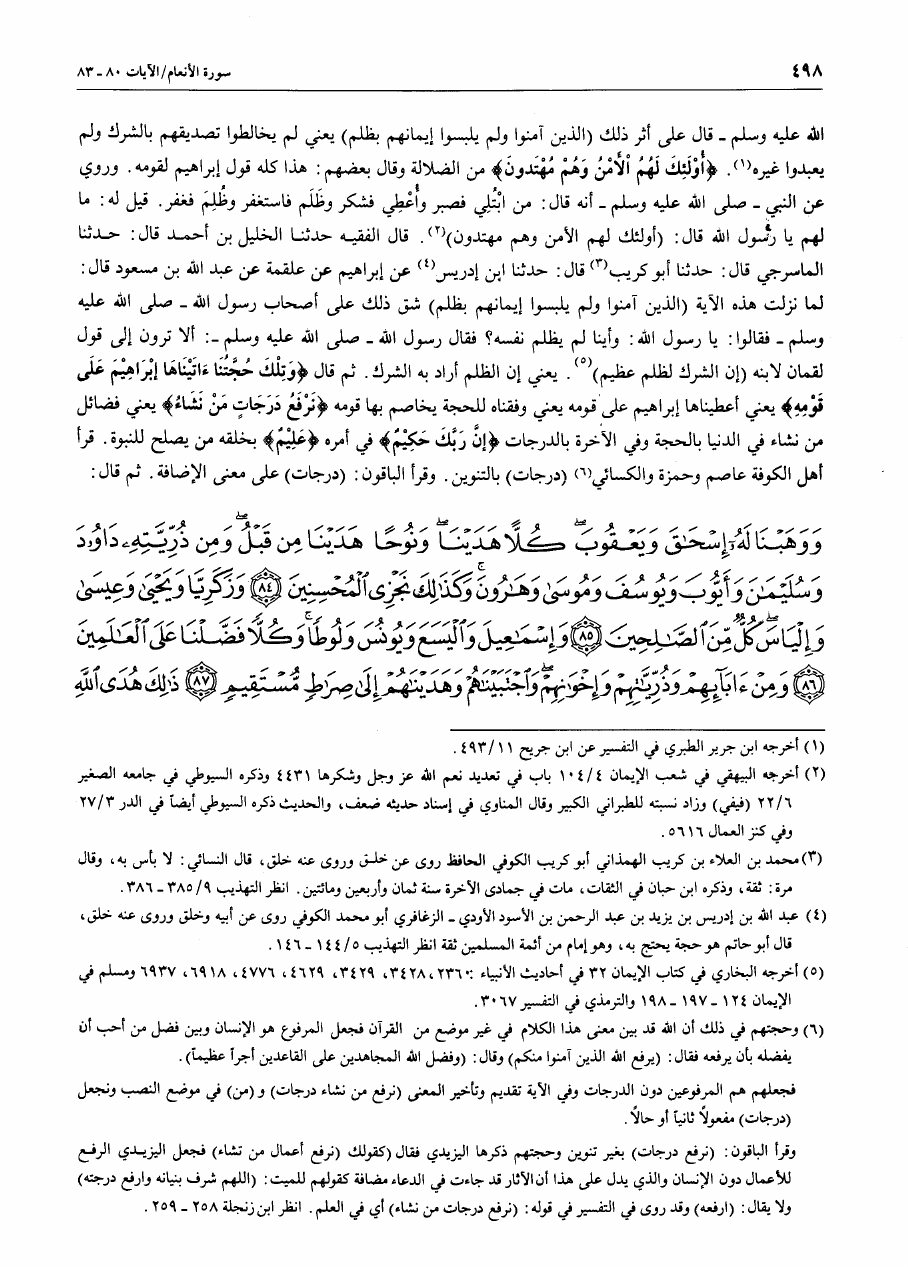 ٤٩٨
سورة الأنعام/الآيات ٨٠ ـ ٨٣
الله عليه وسلم ـ قال على أثر ذلك (الذين آمنوا ولم يلبسوا إيمانهم بظلم) يعني لم يخالطوا تصديقهم بالشرك ولم
يعبدوا غيره(١). ﴿أُوْلَئِكَ لَهُم الأَمْنُ وَهُمْ مُهْتَدونَ﴾ من الضلالة وقال بعضهم: هذا كله قول إبراهيم لقومه. وروي
عن النبي ـ صلى الله عليه وسلم ـ أنه قال: من ابْتُلِي فصبر وأُعْطِي فشكر وظَلَم فاستغفر وظُلِمَ فغفر. قيل له: ما
لهم يا رسُول الله قال: (أولئك لهم الأمن وهم مهتدون)(٢). قال الفقيه حدثنا الخليل بن أحمد قال: حدثنا
الماسرجي قال: حدثنا أبو كريب(٣) قال: حدثنا ابن إدريس(٤) عن إبراهيم عن علقمة عن عبد الله بن مسعود قال:
لما نزلت هذه الآية (الذين آمنوا ولم يلبسوا إيمانهم بظلم) شق ذلك على أصحاب رسول الله ـ صلى الله عليه
وسلم ـ فقالوا: يا رسول الله: وأينا لم يظلم نفسه؟ فقال رسول الله ـ صلى الله عليه وسلم ـ: ألا ترون إلى قول
لقمان لابنه (إن الشرك لظلم عظيم)(٥). يعني إن الظلم أراد به الشرك. ثم قال ﴿وَتِلْكَ حُجَّتُنَا ءَاتَيْنَاهَا إبْرَاهِيْمَ عَلَى
قَوْمِهِ﴾ يعني أعطيناها إبراهيم على قومه يعني وفقناه للحجة يخاصم بها قومه ﴿نَرْفَعُ دَرَجَاتٍ مَنْ نَشَاءُ﴾ يعني فضائل
من نشاء في الدنيا بالحجة وفي الآخرة بالدرجات ﴿إنَّ رَبَّكَ حَكِيْمٌ﴾ في أمره ﴿عَلِيْمٌ﴾ بخلقه من يصلح للنبوة. قرأ
أهل الكوفة عاصم وحمزة والكسائي(٦) (درجات) بالتنوين. وقرأ الباقون: (درجات) على معنى الإضافة. ثم قال:
وَوَهَبْنَا لَهُۥٓ إِسْحَٰقَ وَيَعْقُوبَ ۚ كُلًّا هَدَيْنَا ۚ وَنُوحًا هَدَيْنَا مِن قَبْلُ ۖ وَمِن ذُرِّيَّتِهِۦ دَاوُۥدَ
وَسُلَيْمَٰنَ وَأَيُّوبَ وَيُوسُفَ وَمُوسَىٰ وَهَٰرُونَ ۚ وَكَذَٰلِكَ نَجْزِى ٱلْمُحْسِنِينَ ٨٤ وَزَكَرِيَّا وَيَحْيَىٰ وَعِيسَىٰ
وَإِلْيَاسَ ۖ كُلٌّ مِّنَ ٱلصَّٰلِحِينَ ٨٥ وَإِسْمَٰعِيلَ وَٱلْيَسَعَ وَيُونُسَ وَلُوطًا ۚ وَكُلًّا فَضَّلْنَا عَلَى ٱلْعَٰلَمِينَ
٨٦ وَمِنْ ءَابَآئِهِمْ وَذُرِّيَّٰتِهِمْ وَإِخْوَٰنِهِمْ ۖ وَٱجْتَبَيْنَٰهُمْ وَهَدَيْنَٰهُمْ إِلَىٰ صِرَٰطٍ مُّسْتَقِيمٍ ٨٧ ذَٰلِكَ هُدَى ٱللَّهِ
(١) أخرجه ابن جرير الطبري في التفسير عن ابن جريج ٤٩٣/١١.
(٢) أخرجه البيهقي في شعب الإيمان ١٠٤/٤ باب في تعديد نعم الله عز وجل وشكرها ٤٤٣١ وذكره السيوطي في جامعه الصغير
٢٢/٦ (فيفي) وزاد نسبته للطبراني الكبير وقال المناوي في إسناد حديثه ضعف، والحديث ذكره السيوطي أيضاً في الدر ٢٧/٣
وفي كنز العمال ٥٦١٦.
(٣) محمد بن العلاء بن كريب الهمذاني أبو كريب الكوفي الحافظ روى عن خلق وروى عنه خلق، قال النسائي: لا بأس به، وقال
مرة: ثقة، وذكره ابن حبان في الثقات، مات في جمادى الآخرة سنة ثمان وأربعين ومائتين. انظر التهذيب ٣٨٥/٩ ـ ٣٨٦.
(٤) عبد الله بن إدريس بن يزيد بن عبد الرحمن بن الأسود الأودي ـ الزغافري أبو محمد الكوفي روى عن أبيه وخلق وروى عنه خلق،
قال أبو حاتم هو حجة يحتج به، وهو إمام من أئمة المسلمين ثقة انظر التهذيب ١٤٤/٥ ـ ١٤٦.
(٥) أخرجه البخاري في كتاب الإيمان ٣٢ في أحاديث الأنبياء: ٢٣٦٠، ٣٤٢٨، ٣٤٢٩، ٤٦٢٩، ٤٧٧٦، ٦٩١٨، ٦٩٣٧ ومسلم في
الإيمان ١٢٤ ـ ١٩٧ ـ ١٩٨ والترمذي في التفسير ٣٠٦٧.
(٦) وحجتهم في ذلك أن الله قد بين معنى هذا الكلام في غير موضع من القرآن فجعل المرفوع هو الإنسان وبين فضل من أحب أن
يفضله بأن يرفعه فقال: (يرفع الله الذين آمنوا منكم) وقال: (وفضل الله المجاهدين على القاعدين أجراً عظيماً).
فجعلهم هم المرفوعين دون الدرجات وفي الآية تقديم وتأخير المعنى (نرفع من نشاء درجات) و (من) في موضع النصب ونجعل
(درجات) مفعولاً ثانياً أو حالاً.
وقرأ الباقون: (نرفع درجات) بغير تنوين وحجتهم ذكرها اليزيدي فقال (كقولك (نرفع أعمال من نشاء) فجعل اليزيدي الرفع
للأعمال دون الإنسان والذي يدل على هذا أن الآثار قد جاءت في الدعاء مضافة كقولهم للميت: (اللهم شرف بنيانه وارفع درجته)
ولا يقال: (ارفعه) وقد روى في التفسير في قوله: (نرفع درجات من نشاء) أي في العلم. انظر ابن زنجلة ٢٥٨ ـ ٢٥٩.